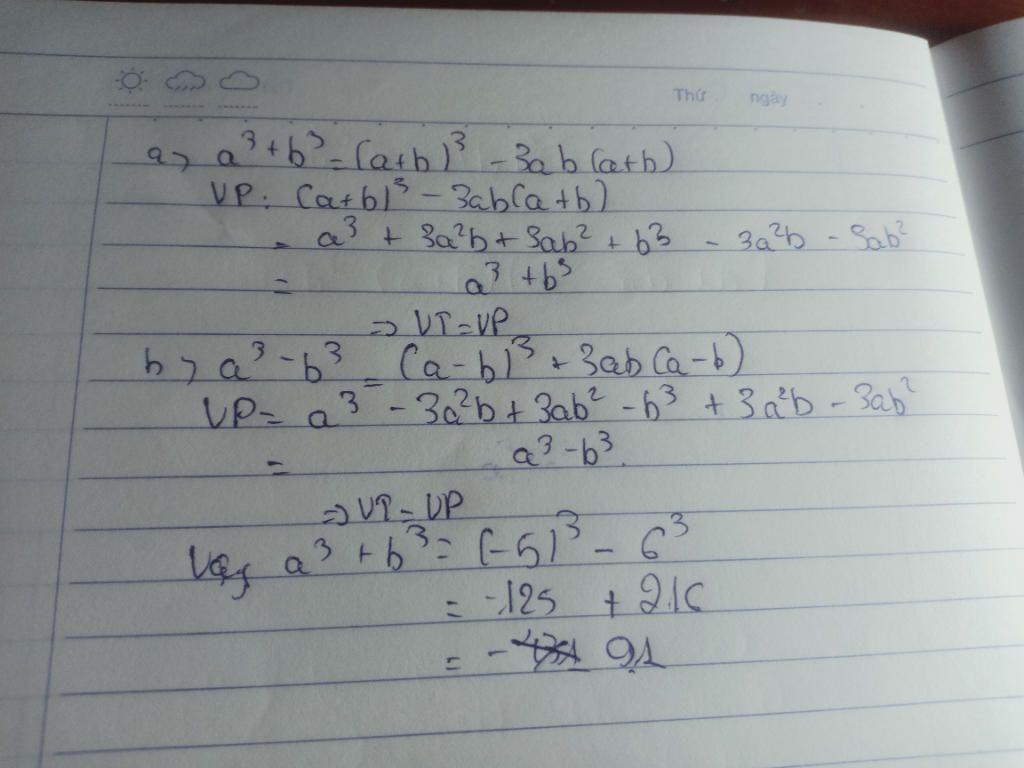 Thứ ngày
a> a³ + b³ = (a+b)³ - 3ab (a+b)
VP: (a+b)³ - 3ab(a+b)
= a³ + 3a²b + 3ab² + b³ - 3a²b - 3ab²
= a³ + b³
=> VT = VP
b> a³ - b³ = (a-b)³ + 3ab (a-b)
VP = a³ - 3a²b + 3ab² - b³ + 3a²b - 3ab²
= a³ - b³.
=> VT = VP
Vậy a³ + b³ = (-5)³ - 6³
= -125 + 216
= - 91